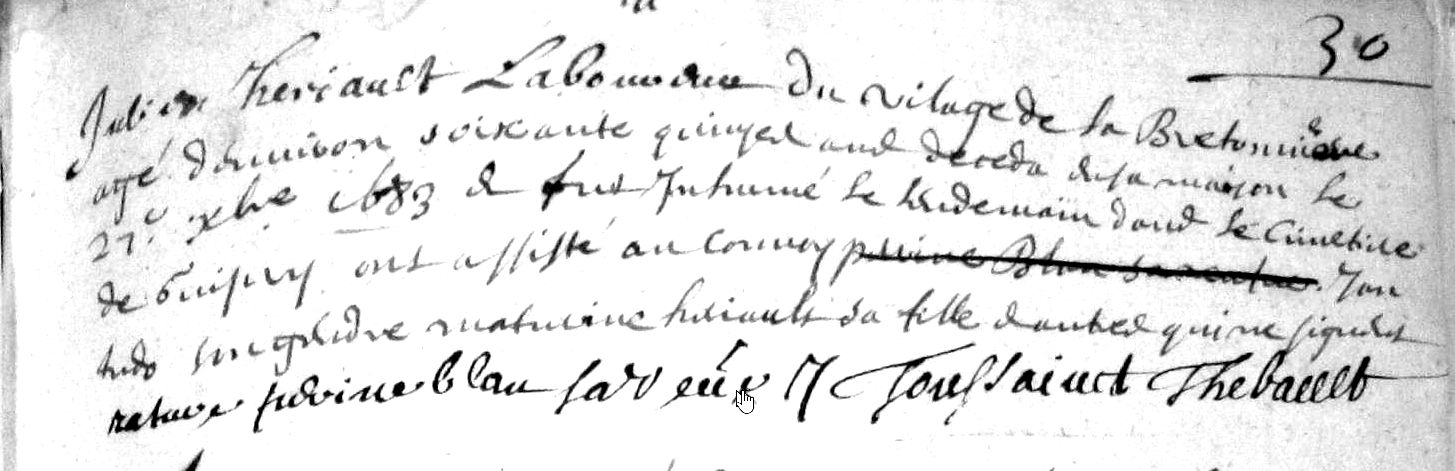 30
Julien heriault Laboureur du vilage de la Bretonniere
agé d'environ soixante quinzes ans deceda en sa maison le
27e xbre 1683 & fut Inhumé le lendemain dans le Cimetiere
de Guipry ont assisté au Convoy perrine Blan sa Jan
tudo son gendre maturine heriault sa fille & autres qui ne signent
perrine blan sa veuve Toussainct Thebault